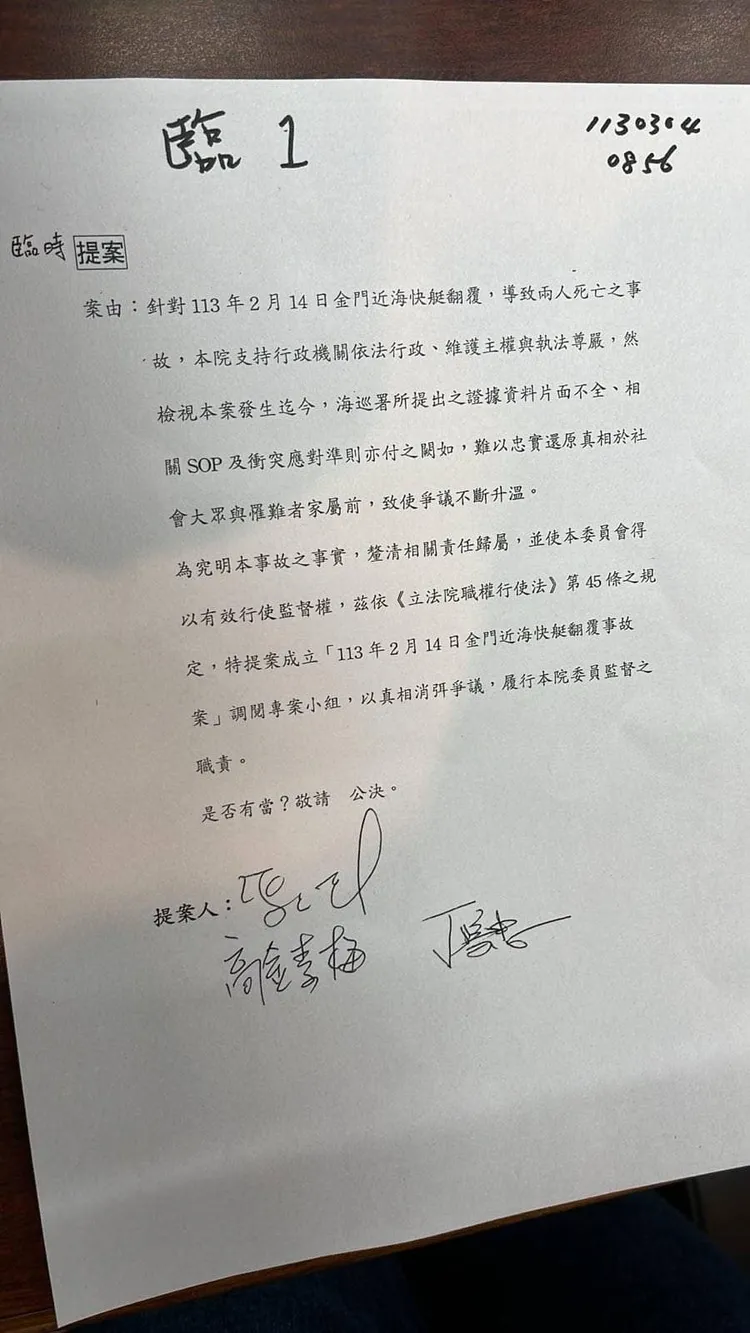 臨 1
1130304
0856
臨時 提案
案由：針對 113 年 2 月 14 日金門近海快艇翻覆，導致兩人死亡之事
故，本院支持行政機關依法行政、維護主權與執法尊嚴，然
檢視本案發生迄今，海巡署所提出之證據資料片面不全、相
關 SOP 及衝突應對準則亦付之闕如，難以忠實還原真相於社
會大眾與罹難者家屬前，致使爭議不斷升溫。
為究明本事故之事實，釐清相關責任歸屬，並使本委員會得
以有效行使監督權，茲依《立法院職權行使法》第 45 條之規
定，特提案成立「113 年 2 月 14 日金門近海快艇翻覆事故
案」調閱專案小組，以真相消弭爭議，履行本院委員監督之
職責。
是否有當？敬請　公決。
提案人：
高金素梅